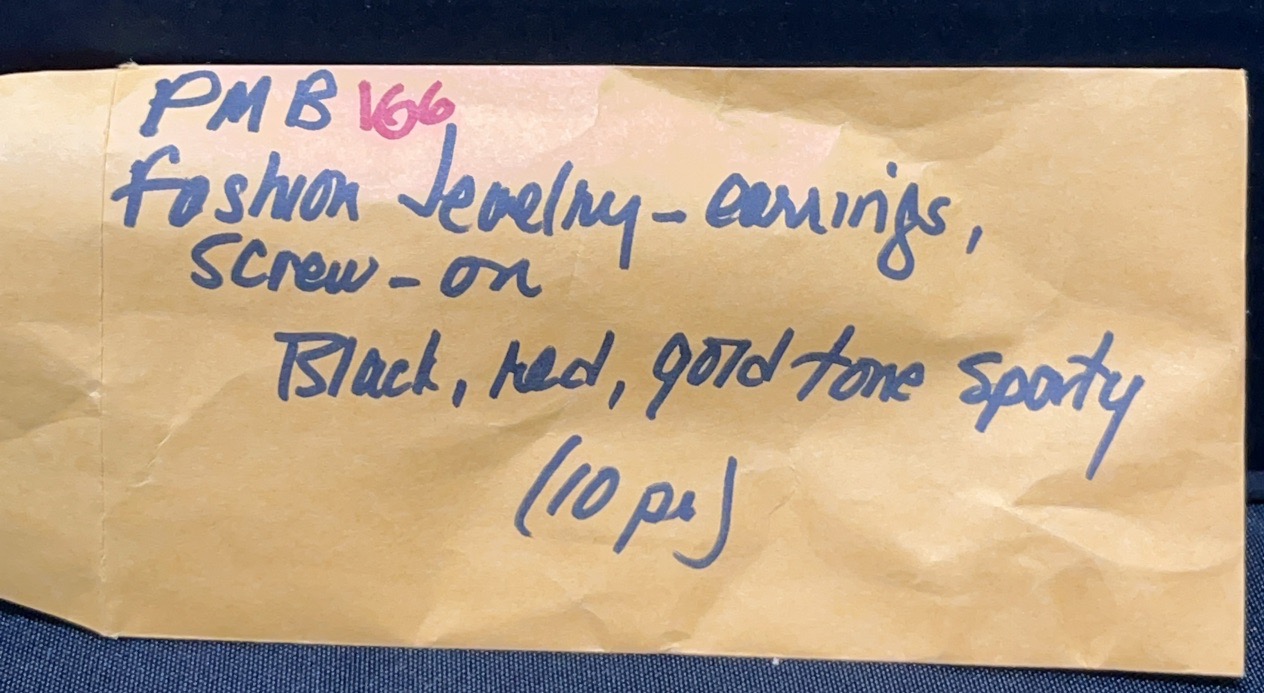 PMB 166
Fashion Jewelry - earrings,
screw-on
Black, red, gold tone sporty
(10 pr)